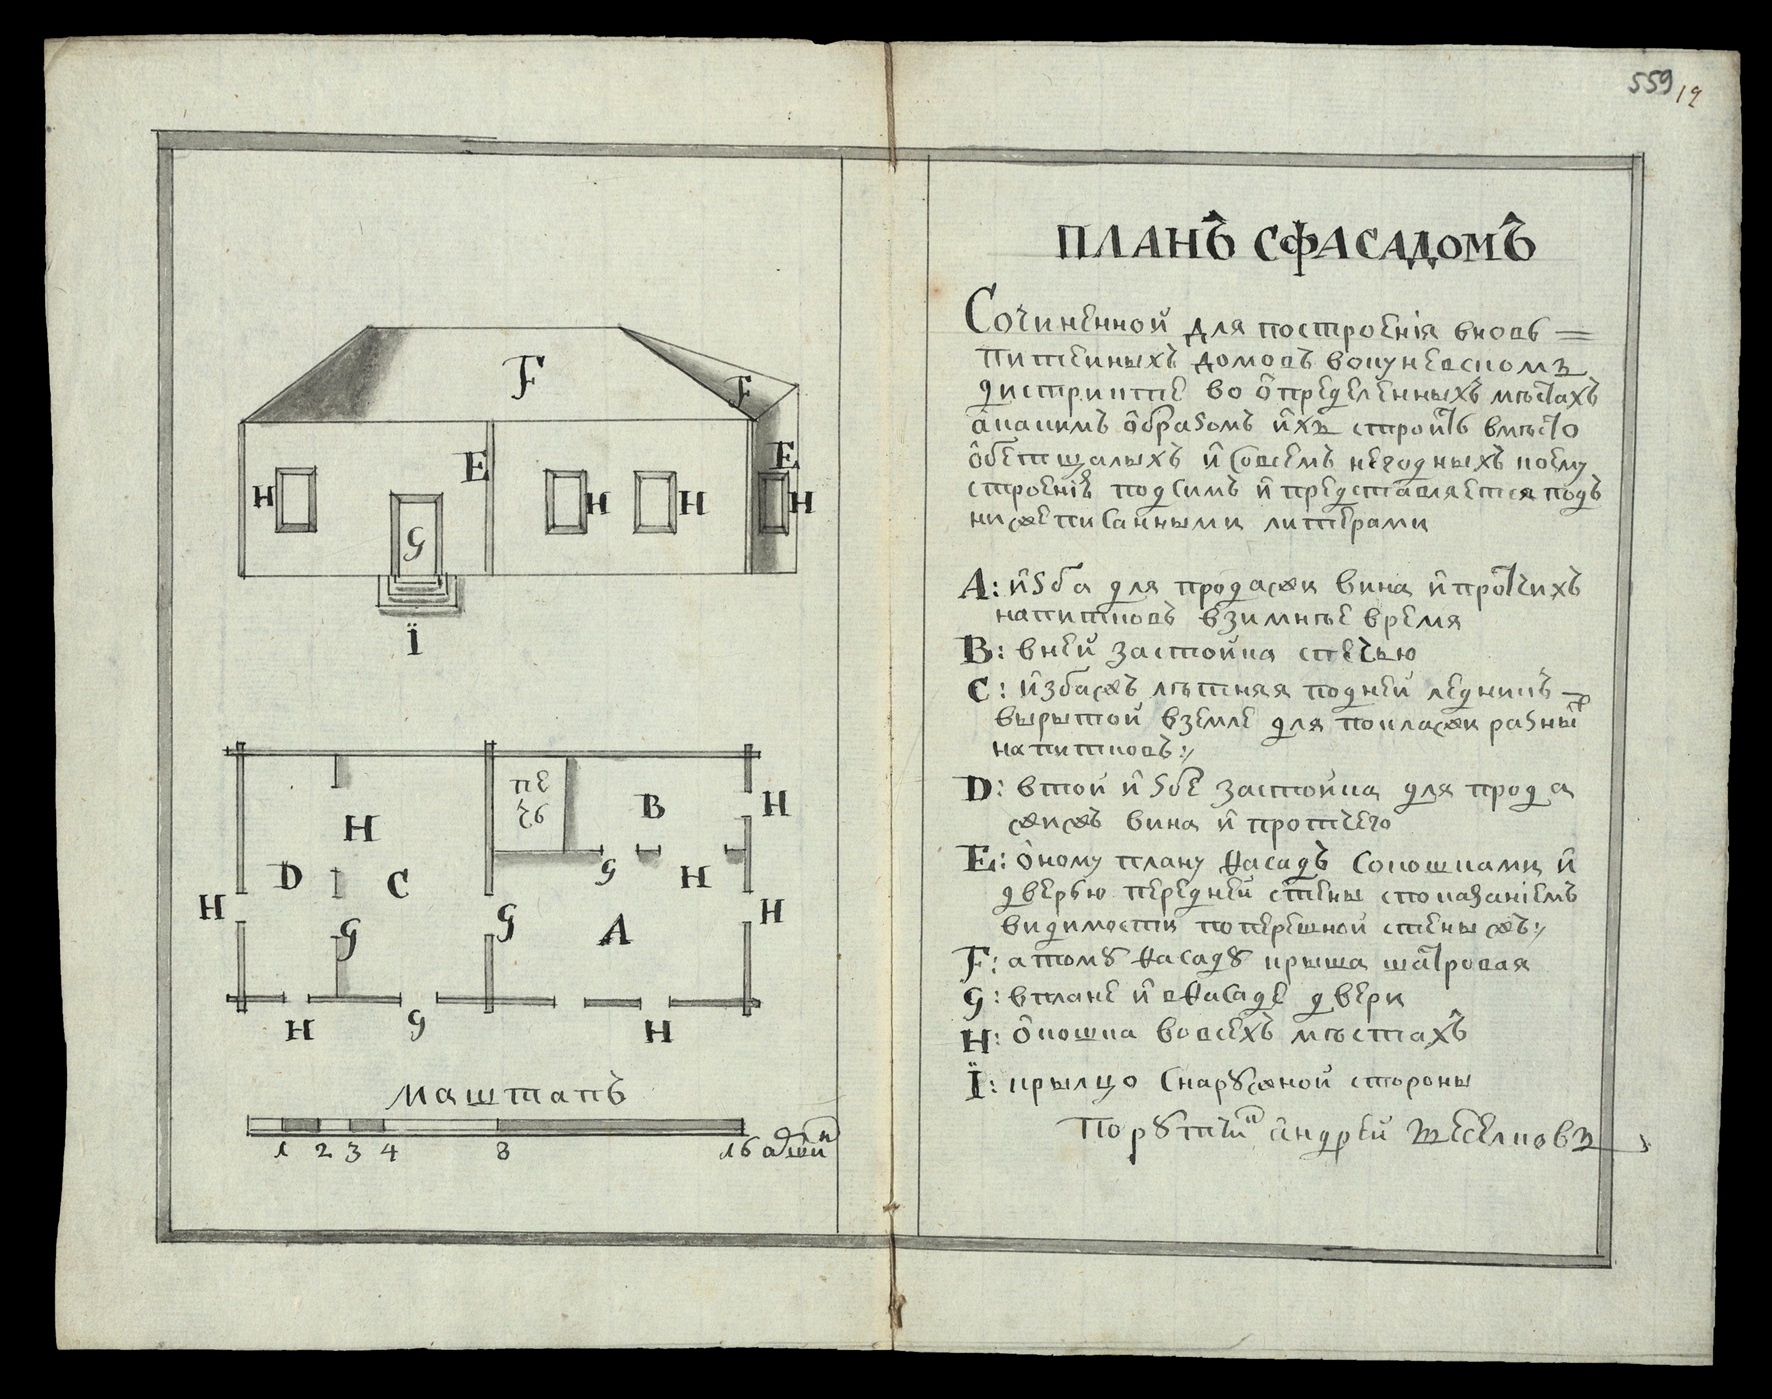 559 19
ПЛАНЪ СФАСАДОМЪ
Сочиненной для построенія вновь =
питейныхъ домовъ вокуневскомъ
дистрикте во определенныхъ мѣстахъ
акакимъ образомъ ихъ строить вмѣсто
обетшалыхъ и совсемъ негодныхъ коему
строеніе подсимъ и представляется подъ
нижеписанными литерами
A: изба для продажи вина и протчихъ
напитковъ взимнѣе время
B: вней застойка спечью
C: избажъ лѣтняя подней ледникъ
вырытой вземле для поклажи разны
напитковъ:,
D: втой избе застойка для прода
жижъ вина и протчего
E: оному плану фасадъ сокошками и
дверью передней стены споказаніемъ
видимости поперешной стены жъ:,
F: атому фасаду крыша шатровая
G: вплане и вфасаде двери
H: окошка вовсехъ мѣстахъ
Ï: крылцо снаружной стороны
Порутчикъ андрей
F
F
E
E
H
H
H
H
G
Ï
пе
чь
B
H
H
D
C
G
H
H
G
G
A
H
H
G
H
маштапъ
1 2 3 4 8 16